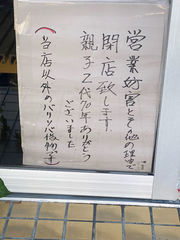 営業妨害とその他の理由で
閉店致します
親子2代70年ありがとう
ございました
(当店以外のパリパリ焼物